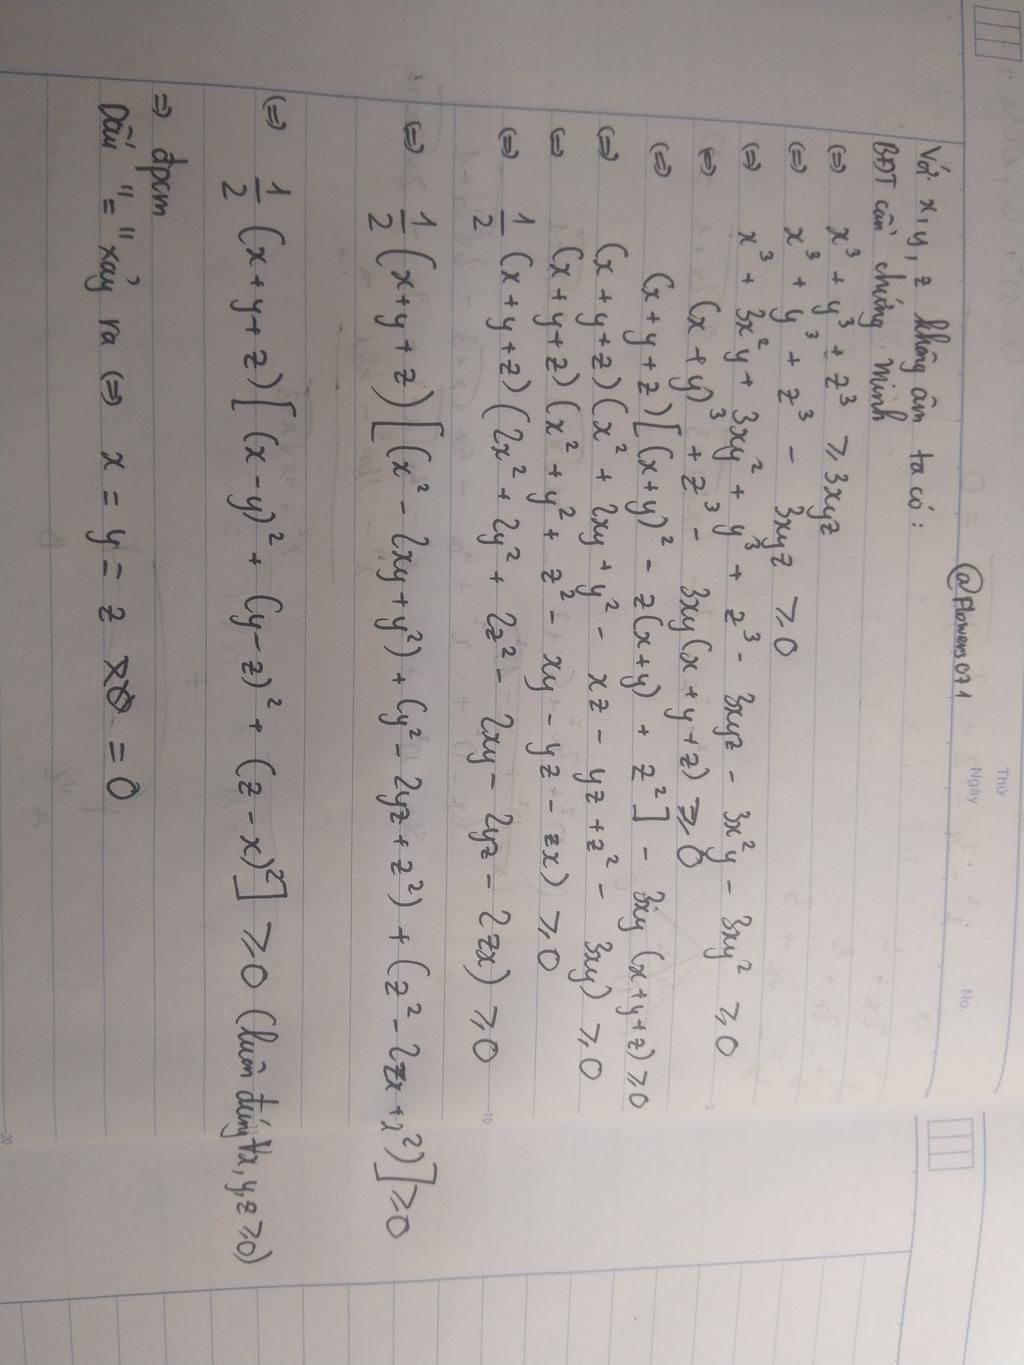 Thứ
Ngày No.
@Flowers071
Với x, y, z không âm ta có:
BĐT cần chứng minh
(=) x³ + y³ + z³ ≥ 3xyz
(=) x³ + y³ + z³ - 3xyz ≥ 0
(=) x³ + 3x²y + 3xy² + y³ + z³ - 3xyz - 3x²y - 3xy² ≥ 0
(=) (x + y)³ + z³ - 3xy(x + y + z) ≥ 0
(=) (x + y + z)[(x+y)² - z(x+y) + z²] - 3xy (x+y+z) ≥ 0
(=) (x + y + z)(x² + 2xy + y² - xz - yz + z² - 3xy) ≥ 0
(=) (x + y + z)(x² + y² + z² - xy - yz - zx) ≥ 0
(=) 1/2 (x + y + z)(2x² + 2y² + 2z² - 2xy - 2yz - 2zx) ≥ 0
(=) 1/2 (x + y + z)[(x² - 2xy + y²) + (y² - 2yz + z²) + (z² - 2zx + x²)] ≥ 0
(=) 1/2 (x + y + z)[(x - y)² + (y - z)² + (z - x)²] ≥ 0 (luôn đúng ∀x, y, z ≥ 0)
=) đpcm
Dấu "=" xảy ra (=) x = y = z = 0
5
10
20